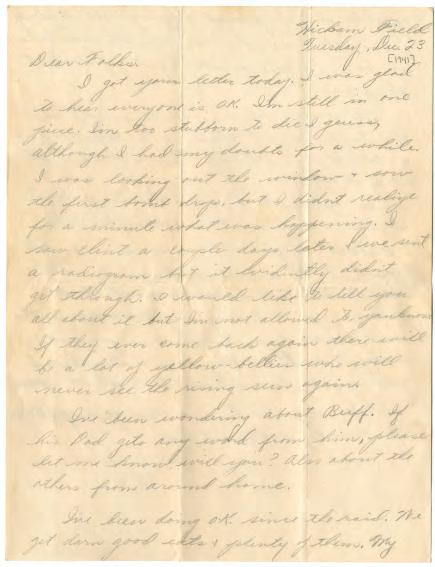 Hickam Field
Tuesday, Dec. 23
[1941]
Dear Folks:
I got your letter today. I was glad
to hear everyone is OK. I'm still in one
piece. I'm too stubborn to die I guess,
although I had my doubts for a while.
I was looking out the window & saw
the first bomb drop, but I didnt realize
for a minute what was happening. I
saw Clint a couple days later & we sent
a radiogram but it evidently didnt
get through. I would like to tell you
all about it but I'm not allowed to, you know.
If they ever come back again there will
be a lot of yellow-bellies who will
never see the rising sun again.
I've been wondering about Buff. If
his Dad gets any word from him, please
let me know will you? Also about the
others from around home.
I've been doing OK. since the raid. We
get darn good eats & plenty of them. My